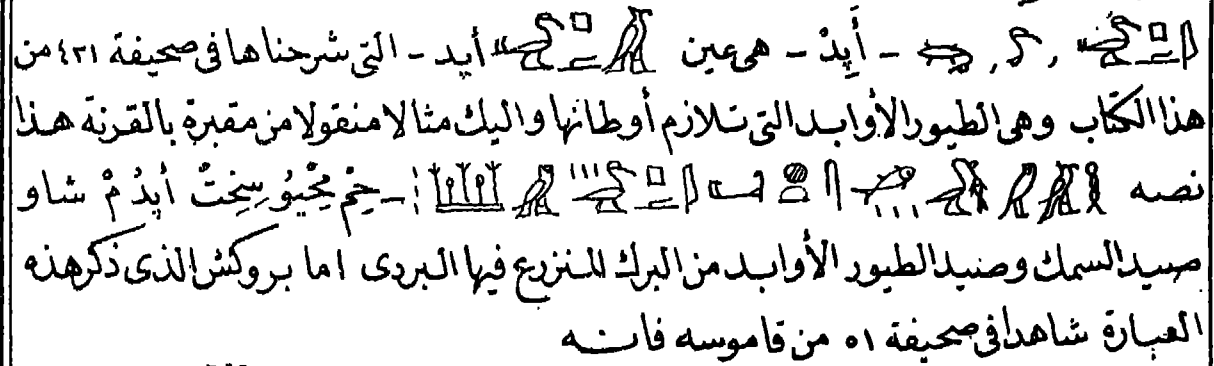 - أَپِدْ - هى عين أپد - التى شرحناها فى صحيفة ٤٢١ من
هذا الكتاب وهى الطيور الأوابد التى تلازم أوطانها واليك مثالا منقولا من مقبرة بالقرنة هذا
نصه - حِمْ مِحْيُو سِخِتْ أپدُ مْ شاو
صيد السمك وصيد الطيور الأوابد من البرك المنزرع فيها البردى اما بروكش الذى ذكر هذه
العبارة شاهدا فى صحيفة ٥١ من قاموسه فانه